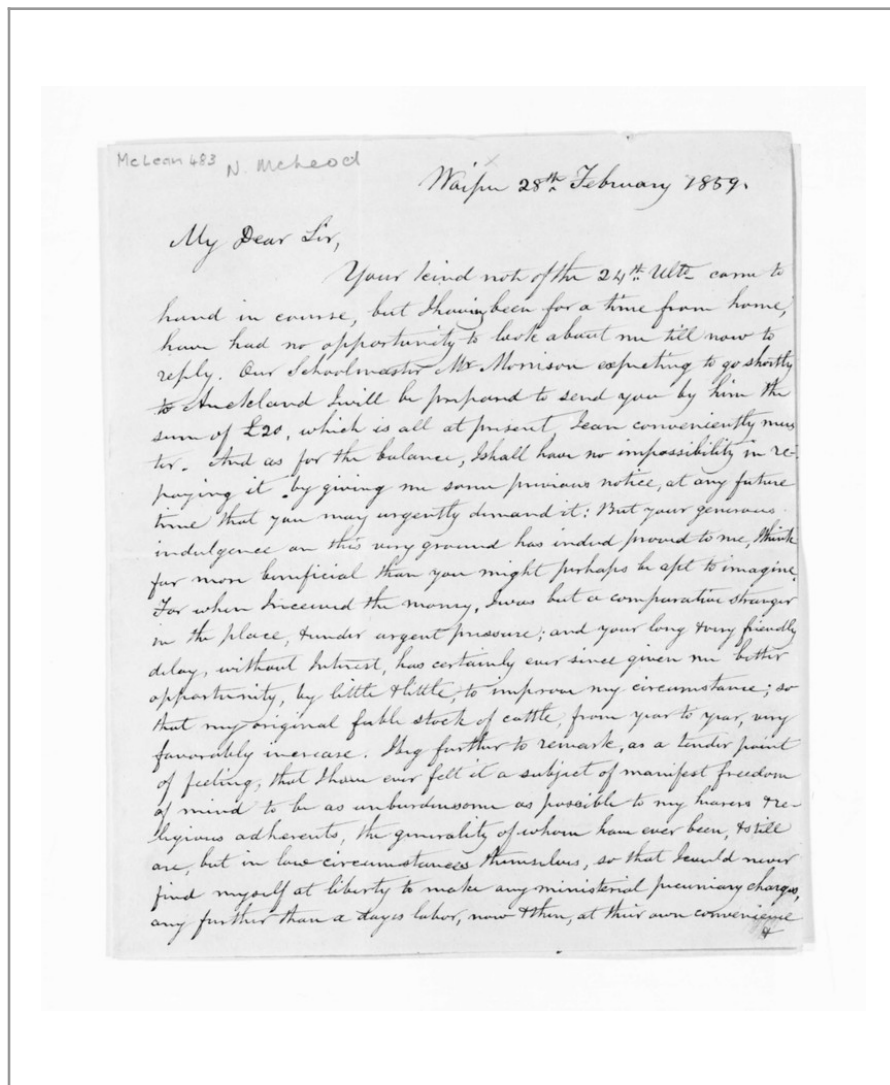 McLean 483 N. McLeod
Waipu 28th February 1859.
My Dear Sir,
Your kind not of the 24th Ulto came to
hand in course, but I having been for a time from home,
have had no opportunity to look about me till now to
reply. Our Schoolmaster Mr Morrison expecting to go shortly
to Auckland I will be prepared to send you by him the
sum of £20, which is all at present, I can conveniently mus
ter. And as for the balance, I shall have no impossibility in re-
paying it by giving me some previous notice, at any future
time that you may urgently demand it: But your generous
indulgence on this very ground has indeed proved to me, I think
far more beneficial than you might perhaps be apt to imagine.
For when I received the money, I was but a comparative stranger
in the place, & under urgent pressure; and your long & very friendly
delay, without Interest, has certainly ever since given me better
opportunity, by little & little, to improve my circumstance; so
that my original feeble stock of cattle, from year to year, very
favorably increase. I beg further to remark, as a tender point
of feeling, that I have ever felt it a subject of manifest freedom
of mind to be as unburdensome as possible to my hearers & re-
ligious adherents, the generality of whom have ever been, & still
are, but in low circumstances themselves, so that I could never
find myself at liberty to make any ministerial pecuniary charges,
any further than a days labor, now & then, at their own convenience
&